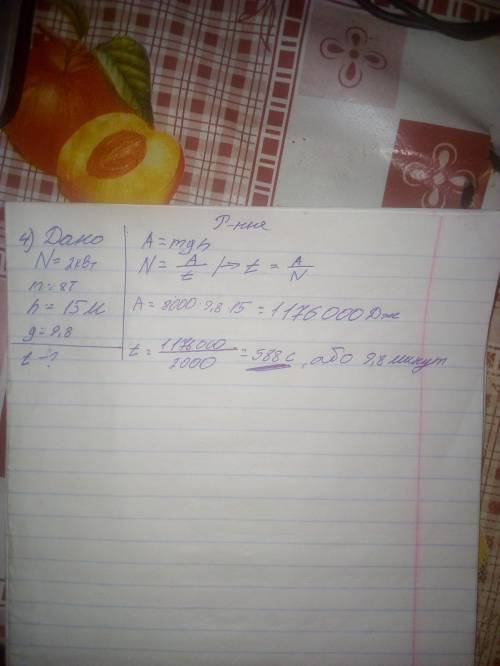 Р-ння
4) Дано
N = 2кВт
m = 8т
h = 15м
g = 9,8
t - ?
A = mgh
N = A/t |→ t = A/N
A = 8000·9,8·15 = 1176000 Дж
t = 1176000/2000 = 588 с, або 9,8 минут